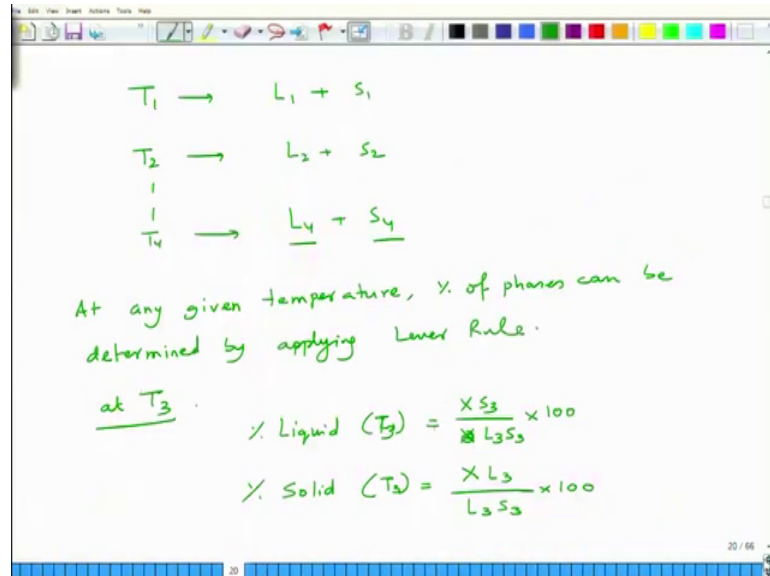 File Edit View Insert Actions Tools Help
T1 → L1 + S1
T2 → L2 + S2
T4 → L4 + S4
At any given temperature, % of phases can be
determined by applying Lever Rule.
at T3.
% Liquid (T3) = XS3 / L3S3 × 100
% Solid (T3) = XL3 / L3S3 × 100
20 / 66
20